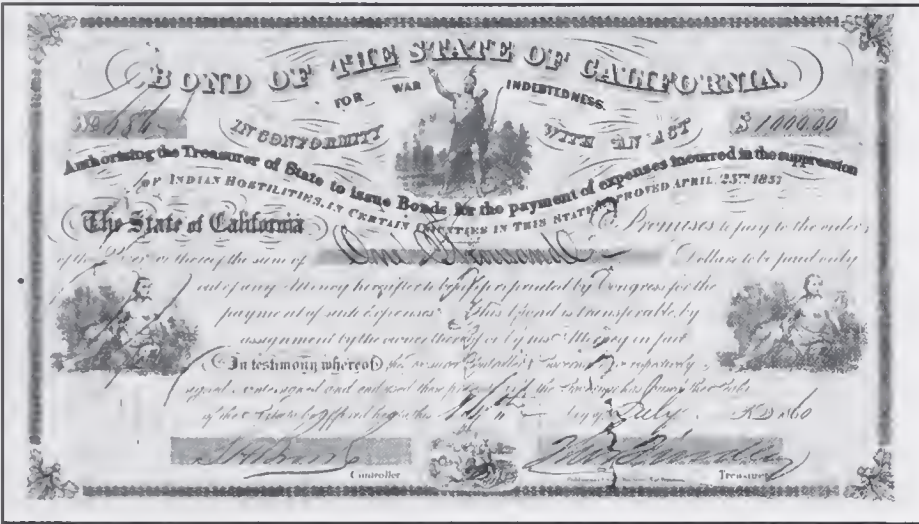 BOND OF THE STATE OF CALIFORNIA.
FOR WAR INDEBTEDNESS.
No 686 $1000.00
IN CONFORMITY WITH AN ACT
Authorising the Treasurer of State to issue Bonds for the payment of expenses incurred in the suppression
OF INDIAN HOSTILITIES, IN CERTAIN COUNTIES IN THIS STATE APPROVED APRIL, 25TH 1857
The State of California Promises to pay to the order
of the thereof the sum of One Thousand Dollars to be paid only
out of any Money hereafter to be appropriated by Congress for the
payment of such Expenses. This Bond is transferable by
assignment by the owner thereof or by his Attorney in fact
In testimony whereof the
signed, countersigned and the Treasurer has
of his Office day of July A.D. 1860
Controller Treasurer